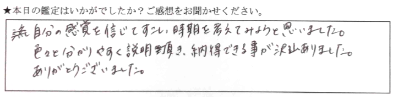 ★本日の鑑定はいかがでしたか？ご感想をお聞かせください。
自分の感覚を信じてすこし時期を考えてみようと思いました。
色々と分かりやすく説明頂き、納得できる事が沢山ありました。
ありがとうございました。